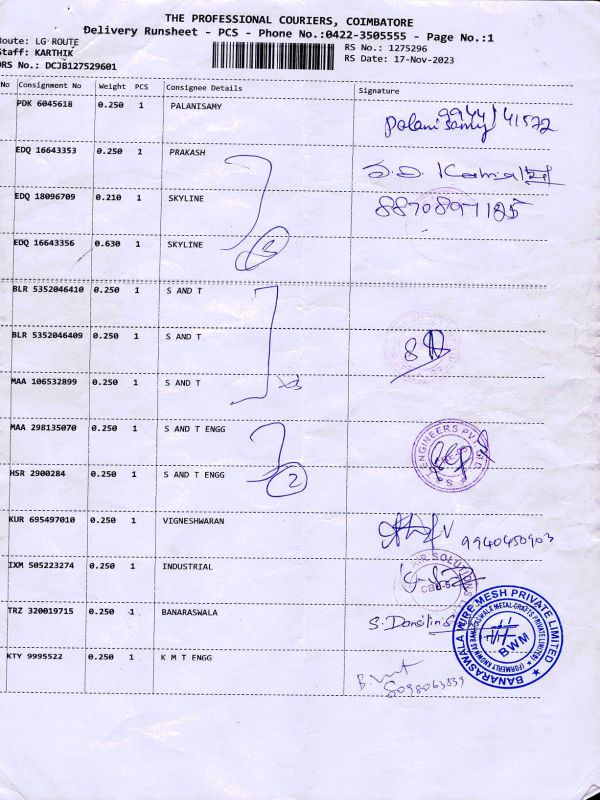 THE PROFESSIONAL COURIERS, COIMBATORE
Delivery Runsheet - PCS - Phone No.:0422-3505555 - Page No.:1
Route: LG ROUTE
Staff: KARTHIK
DRS No.: DCJB127529601
RS No.: 1275296
RS Date: 17-Nov-2023
No Consignment No Weight PCS Consignee Details Signature
PDK 6045618 0.250 1 PALANISAMY Palani Samy 9944141572
EDQ 16643353 0.250 1 PRAKASH
EDQ 18096709 0.210 1 SKYLINE 8870897185
EDQ 16643356 0.630 1 SKYLINE 3
BLR 5352046410 0.250 1 S AND T
BLR 5352046409 0.250 1 S AND T
MAA 106532899 0.250 1 S AND T
MAA 298135070 0.250 1 S AND T ENGG
ENGINEERS PVT
HSR 2900284 0.250 1 S AND T ENGG 2
KUR 695497010 0.250 1 VIGNESHWARAN 9940450903
IXM 505223274 0.250 1 INDUSTRIAL
AIR SOLUTIONS
CBE-5
TRZ 320019715 0.250 1 BANARASWALA
BANARASWALA WIRE MESH PRIVATE LIMITED
(FORMERLY KNOWN AS BANARASWALA METAL-CRAFTS PRIVATE LIMITED)
BWM
KTY 9995522 0.250 1 K M T ENGG